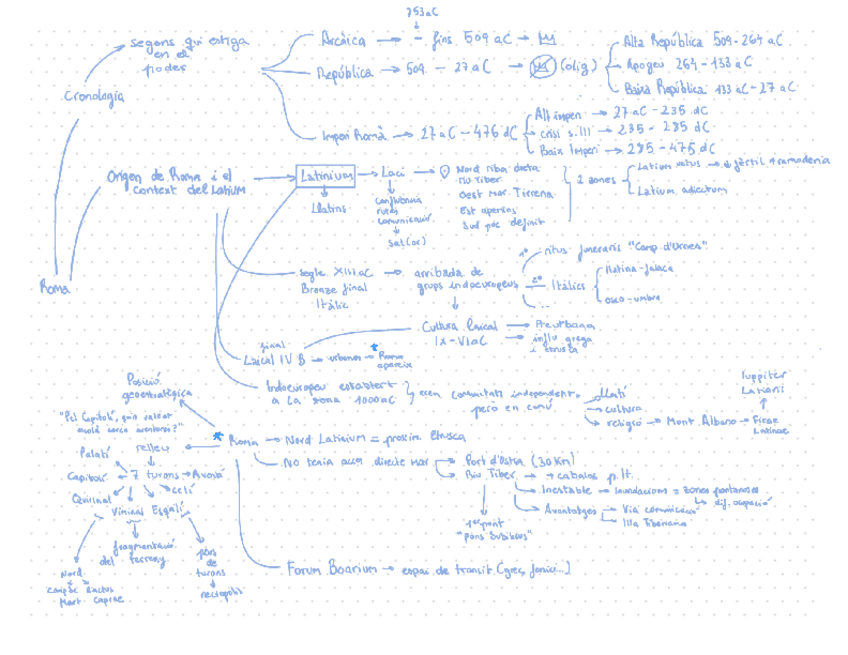 753 aC
segons qui estiga
en el
poder
Arcàica → - fins 509 aC →
República → 509 - 27 aC → (olig)
Alta República 509-264 aC
Apogeu 264-133 aC
Baixa República 133 aC-27 aC
Cronologia
Imperi Romà → 27 aC-476 dC
Alt imperi → 27 aC-235 dC
crisi s.III → 235-285 dC
Baix Imperi → 285-475 dC
Origen de Roma i el
context del Latium
Latinium → Laci →
Llatins
confluència
rutes
comunicació
Sal(ar)
Nord riba dreta
riu Tiber
Oest mar Tirrena
Est apenins
Sud poc definit
2 zones
Latium vetus → fèrtil + ramaderia
Latium adiectum
Roma
segle XIII aC → arribada de
Bronze final
Itàlic
grups indoeuropeus
1º ritus funeraris "Camp d'Urnes"
2º Itàlics
...
llatina-falisca
osco-umbra
Cultura lacial → Preurbana
IX-VI aC → influ grega
i etrusca
final
Lacial IV B → urbanes → Roma
apareix
Indoeuropeu establert
a la zona 1000 aC
eren comunitats independent.
però en comú
llatí
cultura
religió → Mont Albano → Firae
Latinae
Iuppiter
Latiaris
Posició
geoestratègica
"Pel Capitoli,
Roma → Nord Latinium = proxim Etrusca
relleu
Palatí
Capitolí ← 7 turons → Aventí
Quirinal
Celi
Viminal Esquilí
No tenia accés directe mar
Port d'Òstia (30 Km)
Riu Tiber → + cabalos p.It.
Inestable → Inundacions = zones pantanoses
dif. ocupació
Avantatges
Via comunicació
Illa Tiberina
1er pont
"pons Sublicius"
fragmentació
del terreny
Nord
peus
de
turons
necròpolis
Forum Boarium → espai de transit (grec, fenici...)